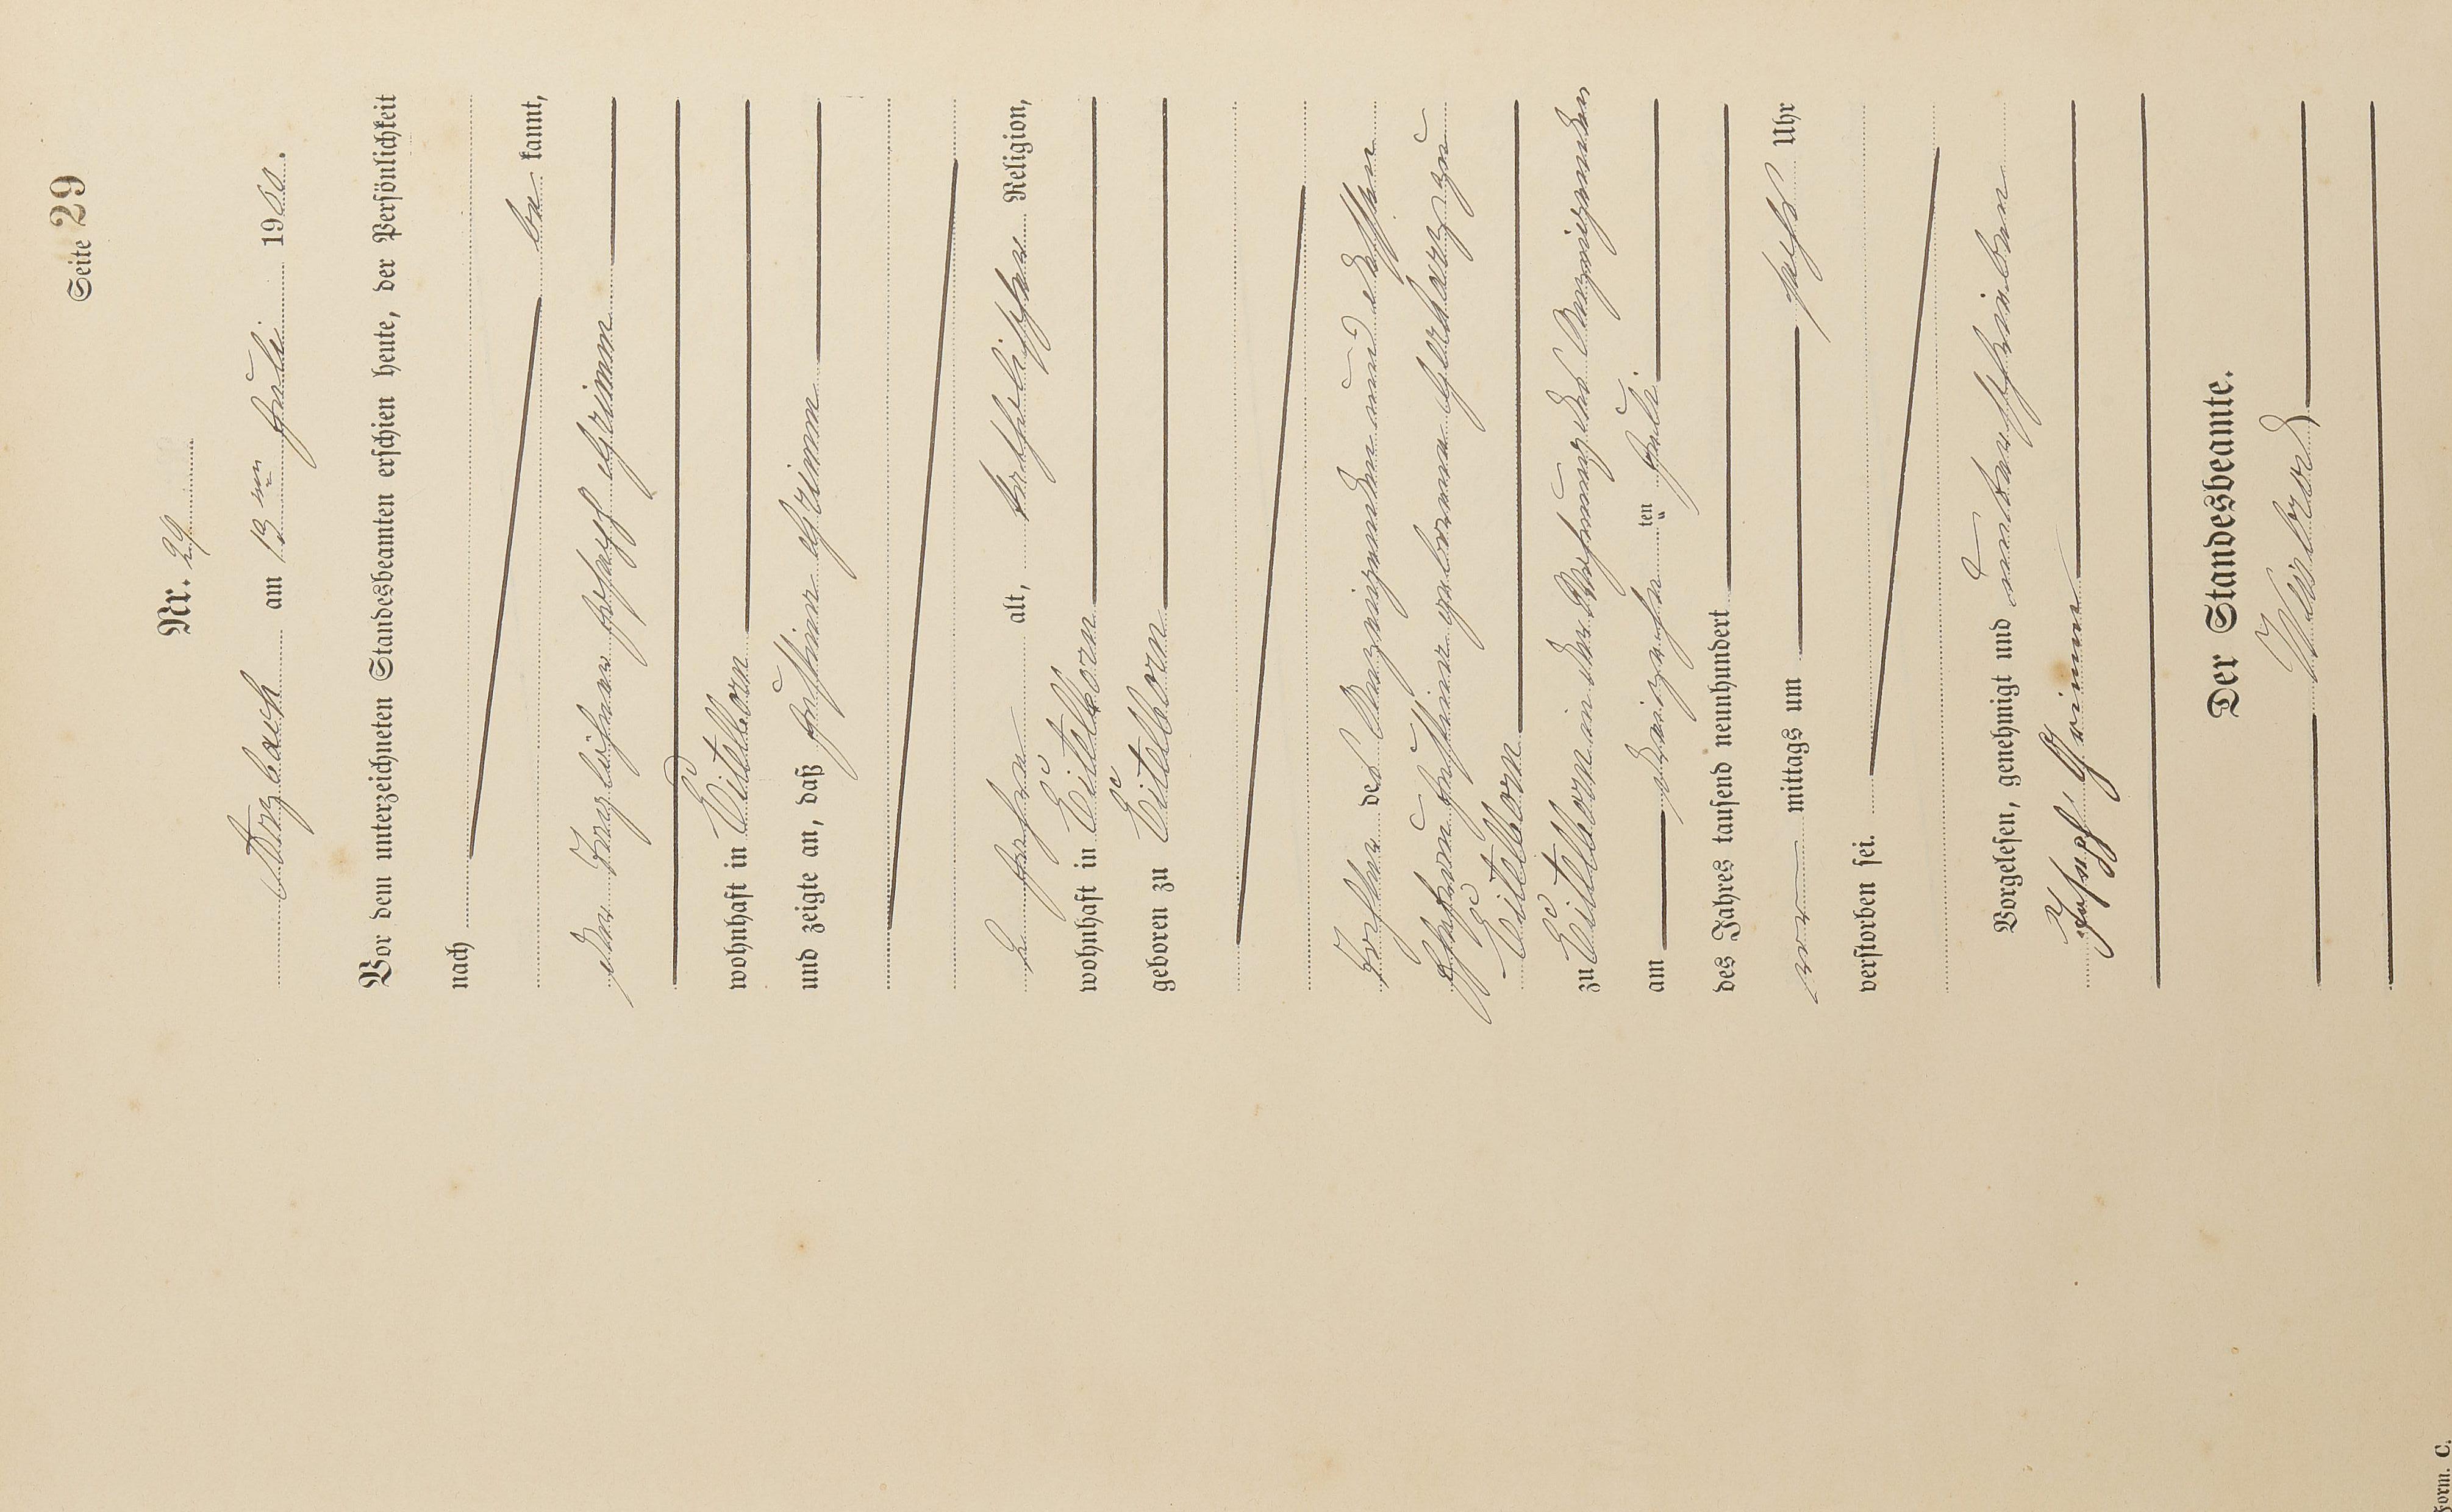 Seite 29
Nr. 29
Arzbach am 13ten Juli 1900.
Vor dem unterzeichneten Standesbeamten erschien heute, der Persönlichkeit
nach
be kannt,
der Taglöhner Joseph Grimm
wohnhaft in Eitelborn
und zeigte an, daß Justine Grimm
2 Jahre alt, katholischer Religion,
wohnhaft in Eitelborn
geboren zu Eitelborn
Tochter des Anzeigenden und dessen
Ehefrau Justine geborene Gerharz zu
Eitelborn
zu Eitelborn in der Wohnung des Anzeigenden
am dreizehnten Juli
des Jahres tausend neunhundert
vor mittags um sechs Uhr
verstorben sei.
Vorgelesen, genehmigt und unterschrieben
Joseph Grimm
Der Standesbeamte.
Form. C.